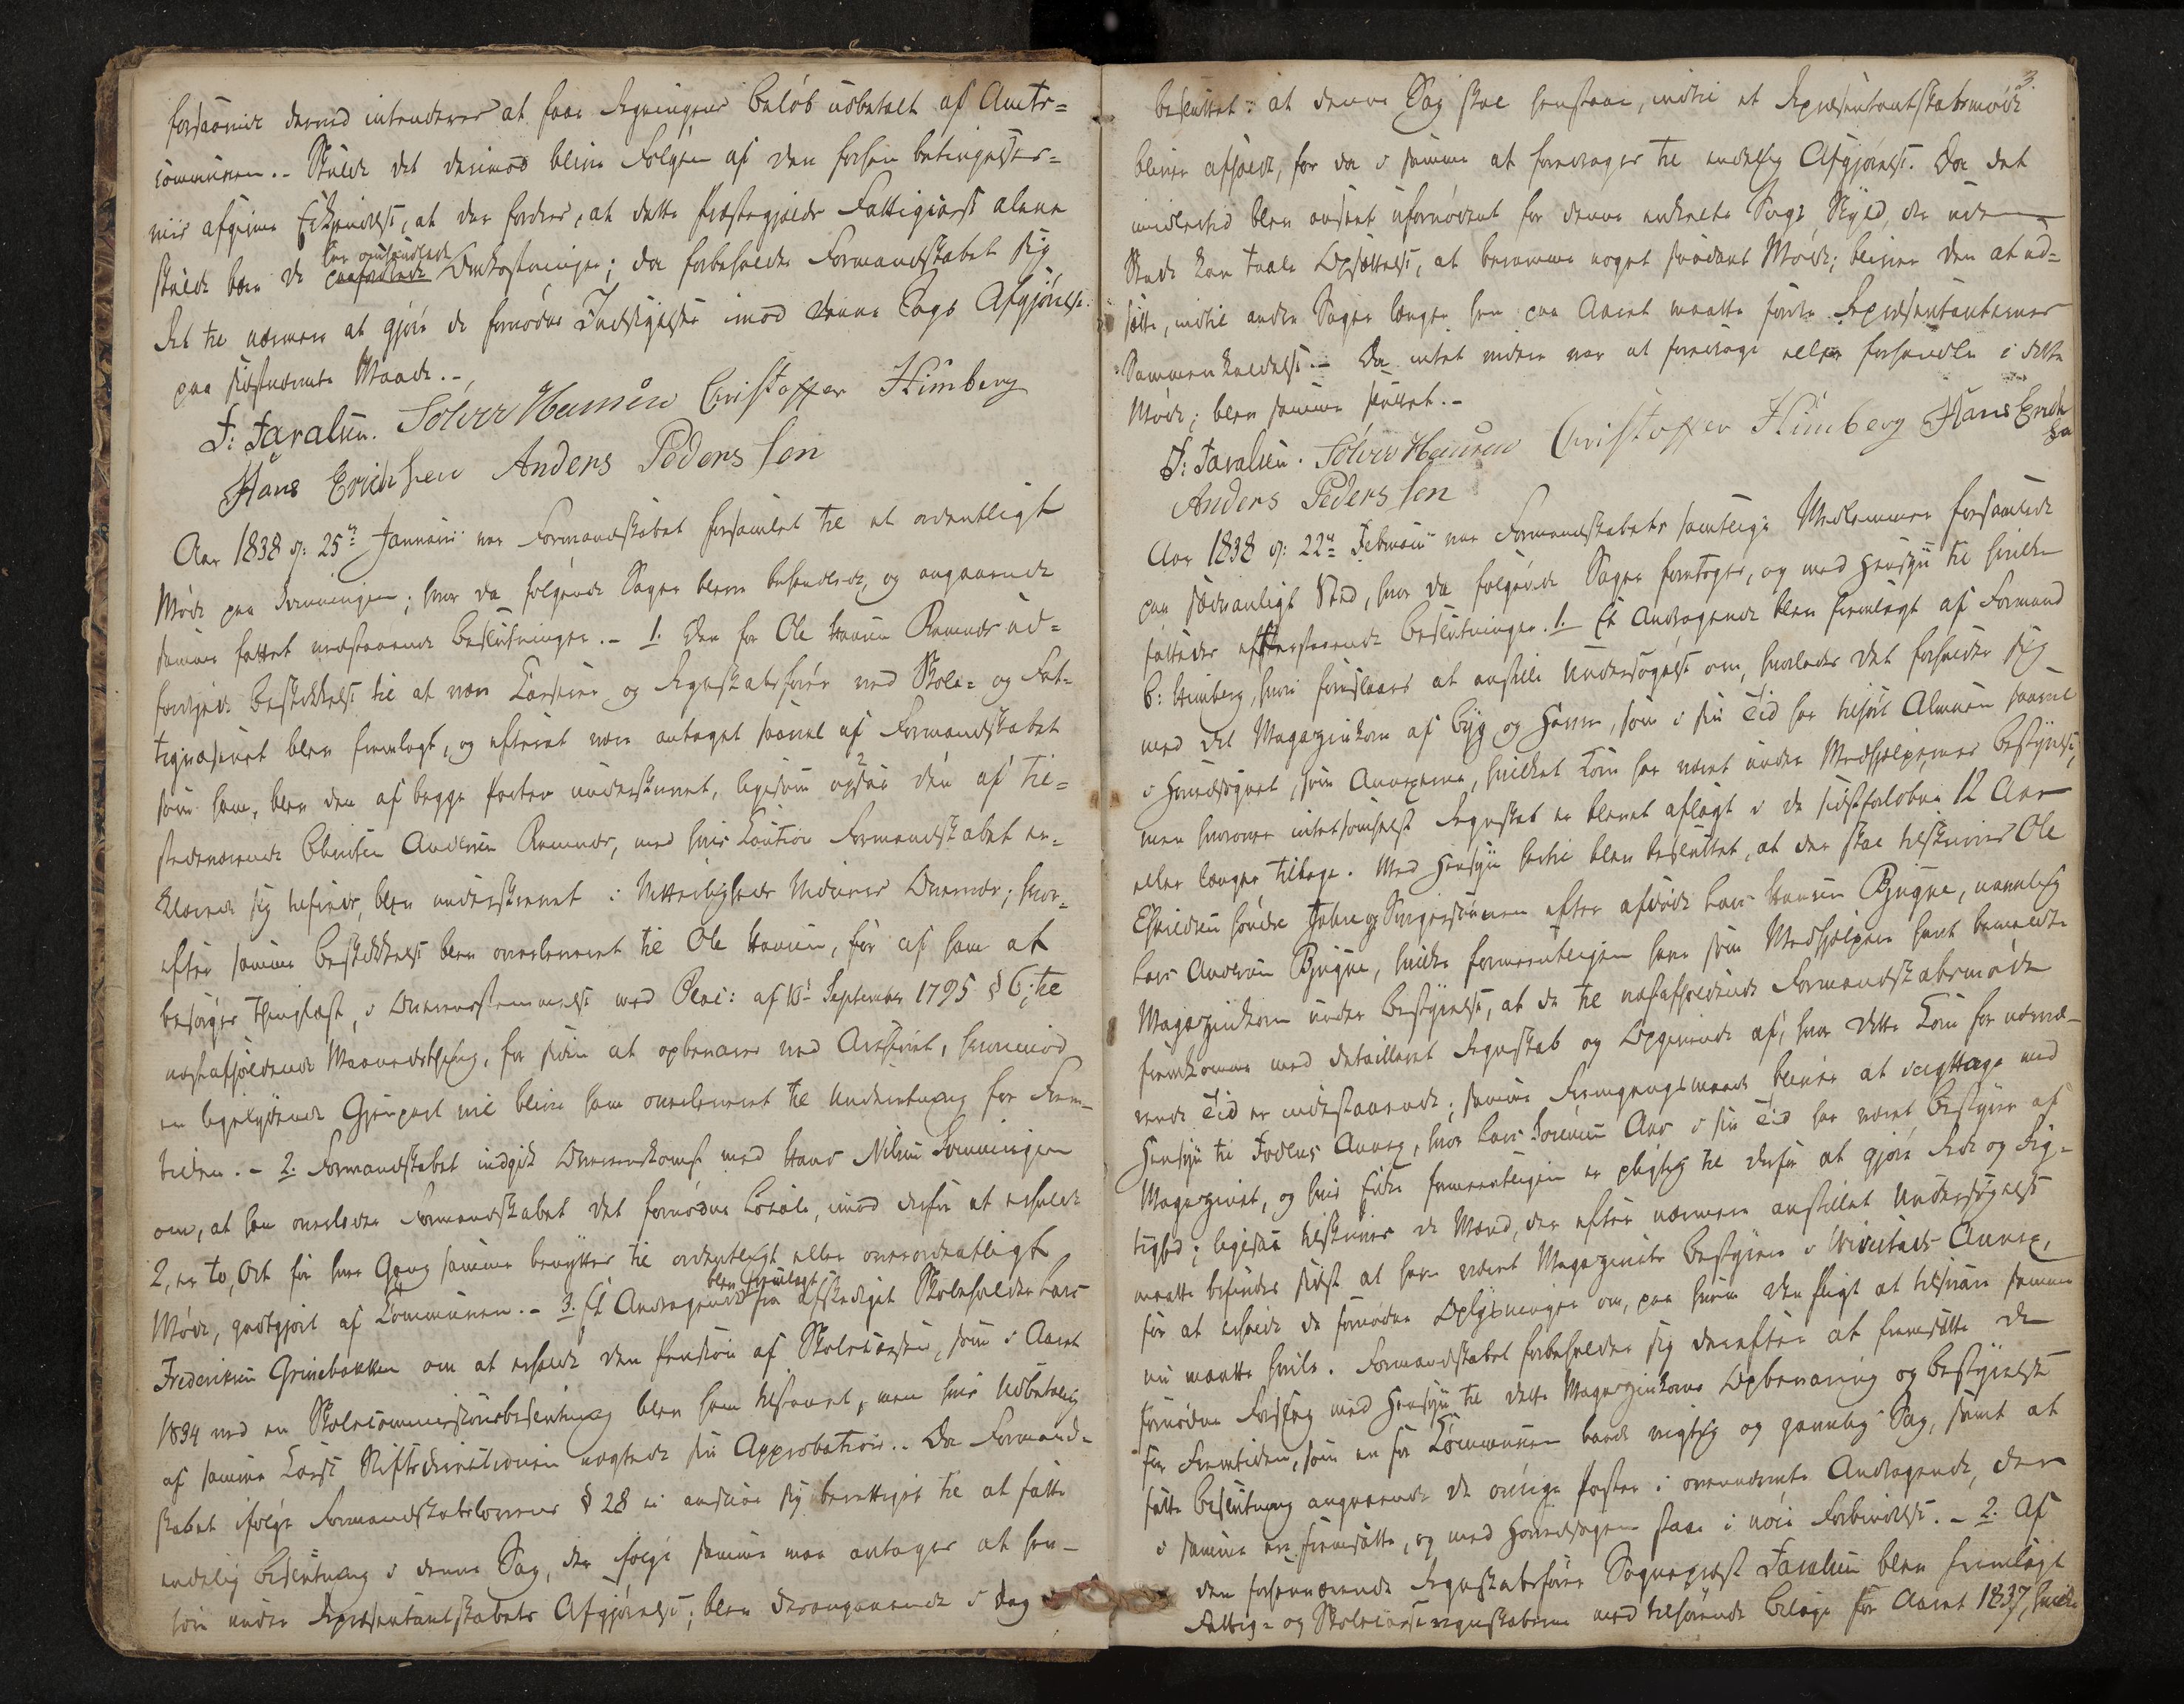 forsaavidt dermed intenderes at faae Regningens Beløb udbetalt af Amts-
communen. - Skulde det derimod blive Følgen af den forhen
afgivne Erkjendelse, at der fordres, at dette Præstegjelds Fattigcasse alene
skulde bære de her omhandlede Omkostninger; da forbeholdte Formandskabet sig
Ret til nærmere at gjøre de fornødne Indsigelser imod denne Sags Afgjørelse
paa sidstnævnte Maade. -
J: Jaralsen. Solver Hansen Christoffer Himberg
Hans Erichsen Anders Pederssen
Aar 1838 d: 25de Januarii var Formandskabet forsamlet til et ordentligt
Møde paa Sonningen; hvor da følgende Sager bleve behandlede, og angaaende
samme fattet nedstaaende Beslutninger. - 1. Den for Ole Hansen Ramnæs ud-
færdigede Beskikkelse til at være Casserer og Regnskabsfører ved Skole- og Fat-
tigvæsenet blev fremlagt, og efterat være antaget saavel af Formandskabet
som ham, blev den af begge Parter underskrevet, ligesom ogsaa den af til-
stedeværende Andersen Ramnæs, med hvis Caution Formandskabet er-
klærede sig tilfreds, blev underskrevet i Vitterligheds Vidners Overvær; hvor-
efter samme Beskikkelse blev overleveret til Ole Hansen, for af ham at
besørges thinglæst, i Overeensstemmelse med Plac: af 10de September 1795 § 6, til
næstafholdende Maanedsthing, for siden at opbevares ved Archivet, hvorimod
en ligelydende Gjenpart vil blive ham overleveret til Underretning for Frem-
tiden. - 2. Formandskabet indgik Overeenskomst med Hans Nilsen Sonningen
om, at han overlader Formandskabet det fornødne Locale, imod derfor at erholde
2, er to, Ort for hver Gang samme benyttes til ordentligt eller overordentligt
Møde, godtgjort af Communen. - 3. Et Andragende blev fremlagt fra afskediget Skoleholder Lars
Frederiksen Grinebakken om at erholde den Pension af Skolecassen, som i Aaret
1834 ved en Skolecommissionsbeslutning blev ham tilstaaet, men hvis Udbetaling
af samme Casse Stiftsdirectionen nægtede sin Approbation. - Da Formand-
skabet ifølge Formandskabslovens § 28 ei ansaae sig berettiget til at fatte
endelig Beslutning i denne Sag, der ifølge samme maa antages at hen-
høre under Repræsentantskabets Afgjørelse; blev derangaaende i Dag
3.
besluttet: at denne Sag skal henstaae, indtil et Repræsentantskabsmøde
bliver afholdt, for da i samme at foredrages til endelig Afgjørelse. Da det
imidlertid blev anseet ufornødent for denne enkelte Sags Skyld, der uden
Skade kan taale Opsættelse, at beramme noget saadant Møde; bliver den at ud-
sætte, indtil andre Sager længer hen paa Aaret maatte fordre Repræsentanternes
Sammenkaldelse. - Da intet videre var at foredrage eller forhandle i dette
Møde; blev samme sluttet. -
J: Jaralsen. Solver Hansen Christoffer Himberg Hans Erich
sen
Anders Pederssen
Aar 1838 d: 22de Februarii var Formandskabets samtlige Medlemmer forsamlede
paa sædvanligt Sted, hvor da følgende Sager foretoges, og med Hensyn til hvilke
fattedes efterstaaende Beslutninger. 1. Et Andragende blev fremlagt af Formand
C: Himberg, hvori foreslaaes at anstille Undersøgelse om, hvorledes det forholder sig
med det Magazinkorn af Byg og Havre, som i sin Tid har tilhørt Almuen saavel
i Hovedsognet, som Annexerne, hvilket Korn har været under Medhjelpernes Bestyrelse,
men hvorover intetsomhelst Regnskab er blevet aflagt i de sidstforløbne 12 Aar
eller længer tilbage. Med Hensyn hertil blev besluttet, at der skal tilskrives Ole
Eskildsen søndre og efter afdøde Lars Hansen Bjugne, nemlig
Lars Andersen Bjugne, hvilke formeentligen have som Medhjelpere havt bemeldte
Magazinkorn under Bestyrelse, at de til næstafholdende Formandskabsmøde
fremkomme med detailleret Regnskab og Opgivende af, hvor dette Korn for nærvæ-
rende Tid er indestaaende; samme Fremgangsmaade bliver at iagttage med
Hensyn til Annex, hvor Lars Sørensen Aas i sin Tid har været Bestyrer af
Magazinet, og hvis Enke formeentligen er pligtig til derfor at gjøre Rede og Rig-
tighed; ligesaa tilskrives de Mænd, der efter nærmere anstillet Undersøgelse
maatte befindes sidst at have været Magazinets Bestyrere i Annex,
for at erholde de fornødne Oplysninger om, paa hvem den Pligt at tilsvare samme
nu maatte hvile. Formandskabet forbeholder sig derefter at fremsætte de
fornødne Forslag med Hensyn til dette Magazinkorns Opbevaring og Bestyrelse
for Fremtiden, som en for Communen baade vigtig og gavnlig Sag, samt at
fatte Beslutning angaaende de øvrige Poster i ovennævnte Andragende, der
i samme ere fremsatte, og med Hovedsagen staae i nøie Forbindelse. - 2. Af
den forhenværende Regnskabsfører Sogneprest Jaralsen blev fremlagt
Fattig- og Skolecasseregnskaberne med tilhørende Bilage for Aaret 1837, hvilke